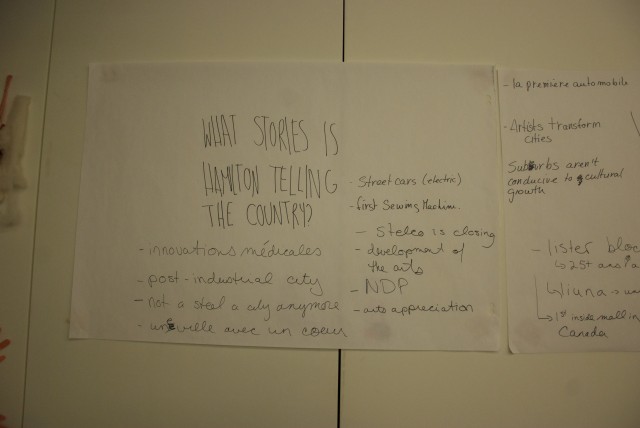 WHAT STORIES IS
HAMILTON TELLING
THE COUNTRY?
- innovations médicales
- post-industrial city
- not a steal a city anymore
- une ville avec un coeur
- Street cars (electric)
- first Sewing Machine.
- Stelco is closing
- development of
the arts
- NDP
- auto appreciation
- la première automobile
- Artists transform
cities
Suburbs aren't
conducive to cultural
growth
- lister bloc
↳ 25+
↳ liuna
↳ 1st inside mall in
Canada